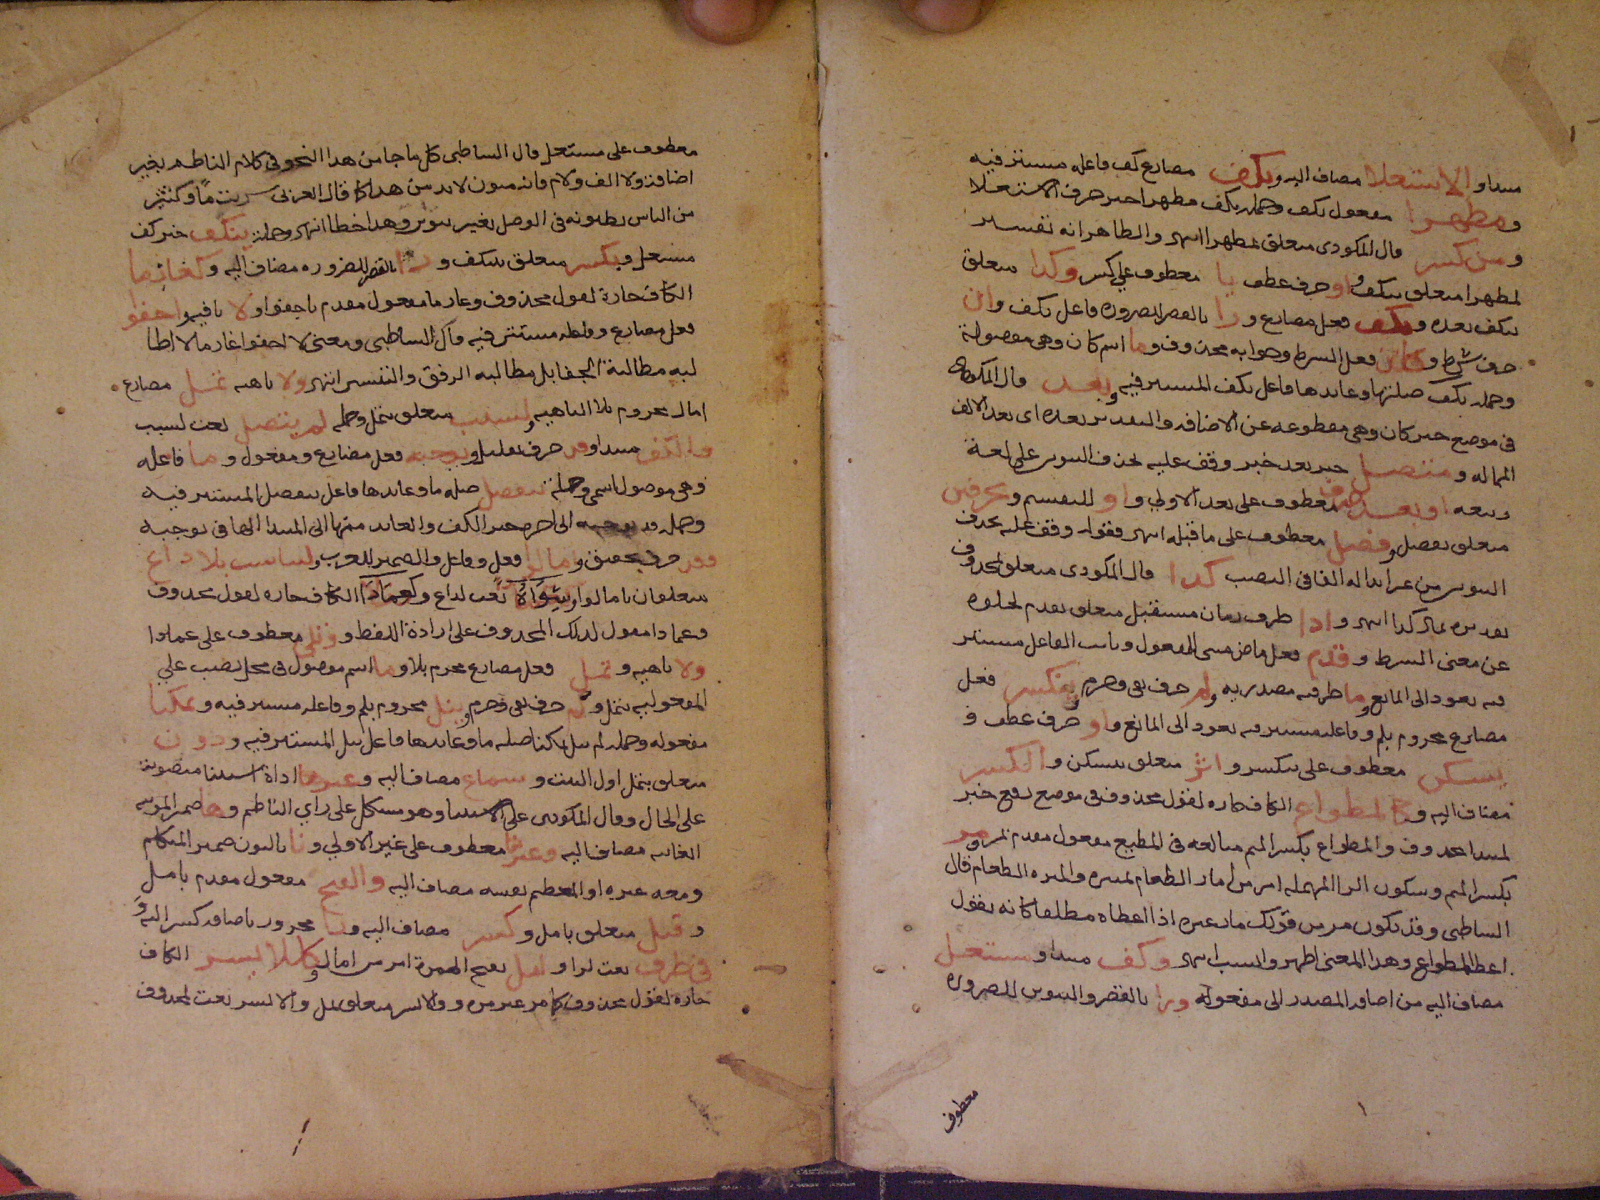 مبتدا وحرف الاستعلا مضاف اليه ويكف مضارع كف فاعله مستتر فيه
ومظهرا مفعول يكف وجملة يكف مظهرا خبر حرف الاستعلا
ومن كسر قال المكودى متعلق بمظهرا انتهى والظاهر انه تفسير
لمظهرا متعلق بيكف واو حرف عطف يا معطوف على كسر وكذا متعلق
بيكف بعده وتكف فعل مضارع ورا بالقصر للضرورة فاعل تكف وان
حرف شرط وكان فعل الشرط وجوابه محذوف وما اسم كان وهى موصولة
وجملة يكف صلتها وعائدها فاعل يكف المستتر فيه وبعد قال المكودى
فى موضع خبر كان وهى مقطوعة عن الاضافة والتقدير بعده اى بعد الالف
الممالة ومتصل خبر بعد خبر وقف عليه بحذف التنوين على لغة
ربيعة او بعد حرف معطوف على بعد الاولى واو للتقسيم وبحرفين
متعلق بفصل وفصل معطوف على ما قبله انتهى وقف عليه بحذف
التنوين من غير ابداله الفا فى النصب كذا قال المكودى متعلق بمحذوف
تقديره يمال كذا انتهى واذا ظرف زمان مستقبل متعلق بقدم لخلوه
عن معنى الشرط وقدم فعل ماض مبنى للمفعول ونائب الفاعل مستتر
فيه يعود الى المانع وما ظرفية مصدرية ولم حرف نفى وجزم وينكسر فعل
مضارع مجزوم بلم وفاعله مستتر فيه يعود الى المانع واو حرف عطف و
يسكن معطوف على ينكسر واثر متعلق بيسكن والكسر
مضاف اليه وكالمطواع الكاف جارة لقول محذوف فى موضع رفع خبر
لمبتدا محذوف والمطواع بكسر الميم مبالغة فى المطيع مفعول مقدم بمر ومر
بكسر الميم وسكون الرا المهملة امر من امار الطعام يميره والميرة الطعام قال
الشاطبى وقد يكون مر من قولك مار غيره اذا اعطاه مطلقا كانه يقول
اعط المطواع وهذا المعنى اظهر وانسب انتهى وكف مبتدا ومستعل
مضاف اليه من اضافة المصدر الى مفعوله ورا بالقصر والتنوين للضرورة
معطوف
معطوف على مستعل قال الشاطبى كل ما جا من هذا النحو فى كلام الناظم بغير
اضافة ولا الف ولام فانه منون لابد من هذا كما قال العربى شربت ما وكثير
من الناس يظنونه فى الوصل بغير تنوين وهذا خطا انتهى وجملة ينكف خبر كف
مستعل وبكسر متعلق بينكف ورا بالقصر للضرورة مضاف اليه وكغارما
الكاف جارة لقول محذوف وغارما مفعول مقدم باجفو ولا نافية واجفو
فعل مضارع وفاعله مستتر فيه قال الشاطبى ومعنى لا اجفو غارما لا اطا
لبه مطالبة الجفا بل مطالبة الرفق والتيسير انتهى ولا ناهية تمل مضارع
امال مجزوم بلا الناهية ولسبب متعلق بتمل وجملة لم يتصل نعت لسبب
والكف مبتدا وقد حرف تقليل ويوجبه فعل مضارع ومفعول وما فاعله
وهى موصول اسمى وجملة ينفصل صلة ما وعائدها فاعل ينفصل المستتر فيه
وجملة قد يوجبه الى اخره خبر الكف والعائد منها الى المبتدا الها فى يوجبه
وقد حرف تحقيق وامالوا فعل وفاعل والضمير للعرب ولتناسب بلا داع
متعلقان بامالوا وسواه نعت لداع وكعمادا الكاف جارة لقول محذوف
وعمادا مقول لذلك المحذوف على ارادة اللفظ وتلا معطوف على عمادا
ولا ناهية وتمل فعل مضارع مجزوم بلا وما اسم موصول فى محل نصب على
المفعولية بتمل ولم حرف نفى وجزم وينل مجزوم بلم وفاعله مستتر فيه وتمكنا
مفعوله وجملة لم ينل تمكنا صلة ما وعائدها فاعل ينل المستتر فيه ودون
متعلق بتمل اول البيت وسماع مضاف اليه وغير ها اداة استثنا منصوبة
على الحال وقال المكودى على الاستثنا وهو مشكل على راى الناظم وها ضمير المونثة
الغائبة مضاف اليه وغير نا معطوف على غير الاولى ونا بالنون ضمير المتكلم
ومعه غيره او المعظم نفسه مضاف اليه والفتح مفعول مقدم بامل
وقبل متعلق بامل وكسر مضاف اليه ورا مجرور باضافة كسر اليه و
فى طرف نعت لرا وامل بفتح الهمزة امر من امال وكللايسر الكاف
جارة لقول محذوف كما مر غير مرة وللايسر متعلق بمل والايسر نعت لمحذوف